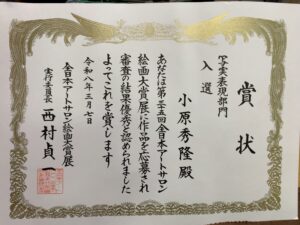 賞状
写実表現部門
入選
小原秀隆殿
あなたは第三十五回全日本アートサロン
絵画大賞展に作品を応募され
審査の結果優秀と認められました
よってこれを賞します
令和八年三月七日
全日本アートサロン絵画大賞展
実行委員長 西村貞一